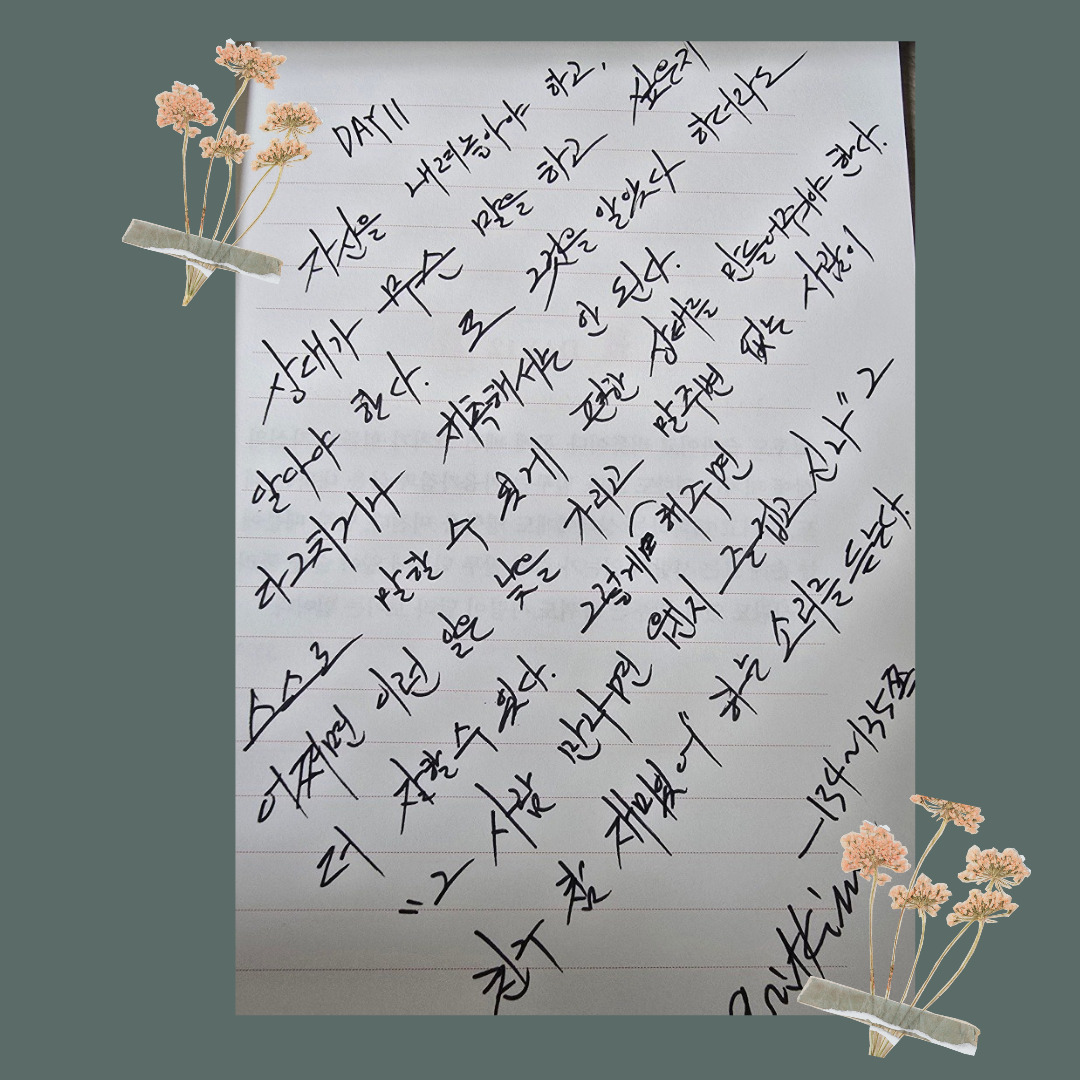 DAY 11
자신을 내려놓아야 하고,
상대가 무슨 말을 하고 싶은지
알아야 한다. 또 그것을 알았다 하더라도
다그치거나 재촉해서는 안 된다.
스스로 말할 수 있게 편한 상태를 만들어주어야 한다.
어쩌면 이런 일은 낯을 가리고 말주변 없는 사람이
더 잘할 수 있다. 그렇게 해주면
"그 사람 만나면 왠지 즐겁고 신나" "그
친구 참 재밌어" 하는 소리를 듣는다.
—134~135쪽